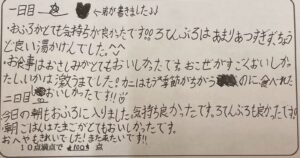 一日目 夜 ←弟が書きました♪♪
・おふろがとても気持ちが良かったです!!!ろてんぶろはあまりあつすぎず、ちょうど
と良い湯かげんでした。^^
・お食事はおさしみがとてもおいしかったです。おこせがすごくおいしか
たしいかは激うまでした!カニはもう季節がちがう のに食べれた
二日目 おいしかったです!!
今日の朝もおふろに入りました。気持ち良かったです。ろてんぶろも良かったです!!
・朝ごはんはたまごがとてもおいしかったです。
おへやもきれいでした!また来たいです!!
10点満点で 1000点